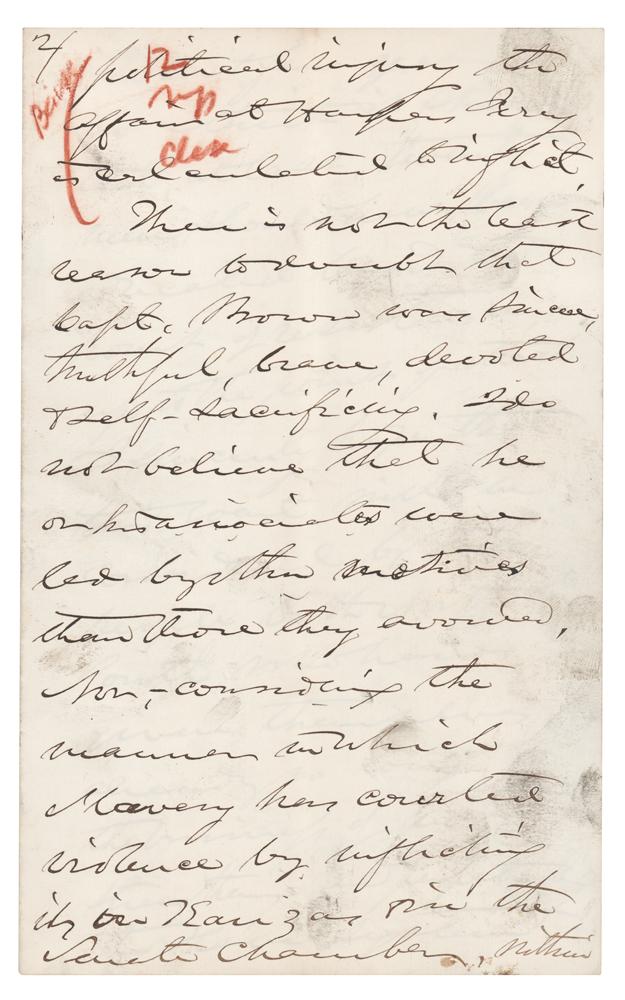 2/
political injury the
affair at Harpers Ferry
is calculated to inflict.
There is not the least
reason to doubt that
Capt. Brown was sincere,
truthful, brave, devoted
& self-sacrificing. I do
not believe that he
or his associates were
led by other motives
than those they avowed,
Nor, - considering the
manner in which
slavery has courted
violence by inflicting
it, in Kanzas & in the
Senate Chamber,